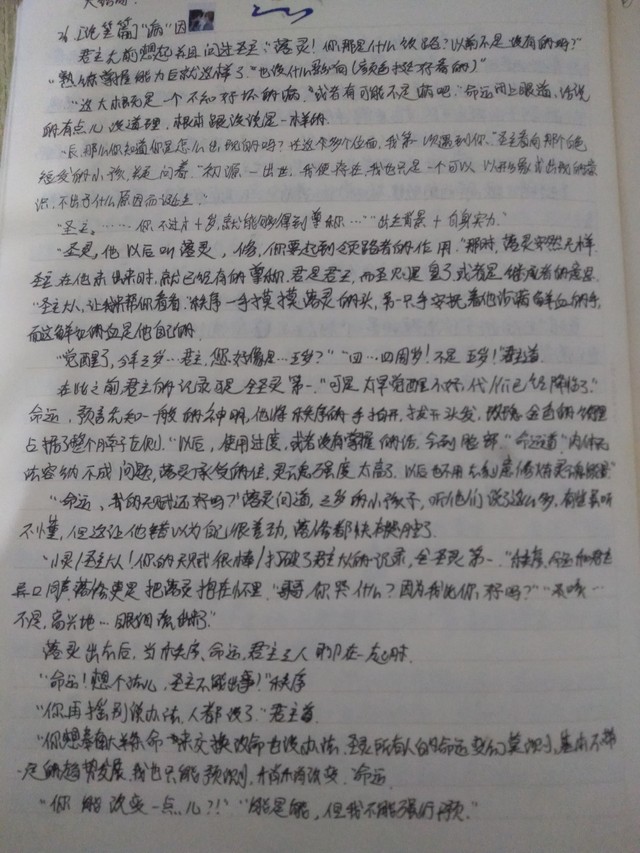 君主大前想起并且问过圣主："落灵！你那是什么纹路？以前不是没有的吗？"
"熟练掌握能力后就这样了。"也没什么影响（颜色挺好看的）
"这大概就是一个不知好坏的病，或者有可能不是病吧。"命运闭上眼道，话说
的有点儿没道理，根本跟没说是一样的。
那么你知道你是怎么出现的吗？这么多个位面，我第一次遇到你。"圣主看向那个白色
短发的小孩，问着。"初源一出世，我便存在，我也只是一个可以以形象式出现的意
识，不知了什么原因而诞生。"
"圣主。……你不过十岁，就能够得到尊称…""出生背景＋自身实力。"
"圣灵，他以后叫落灵，你要起到领路者的作用。"那时，落灵突然
圣主在他未出来时，就已经有的尊称，君是君主，而圣只是皇子或者是继成者的意思。
"圣主大人，让我来帮你看看。"秩序一手摸摸落灵的头，另一只手安抚着他沾满鲜血的手，
而这鲜红的血是他自己的。
"觉醒了，今年三岁…君主，您好像是…五岁？""四…四周岁！不足五岁！"君主道
在此之前君主的记录还是全圣灵第一。"可是太早觉醒不好，代价已经降临了。"
命运，预言先知一般的神明，他将秩序的手拍开，拨开头发，金色的纹路
占据了整个脖子左侧。"以后，使用过度，或者没有掌握的话，会到脸部。"命运道"肉体无
法容纳不成问题，落灵承受的住，灵魂强度太高了，以后也不用太刻意修炼灵魂强度"
"命运，我的天赋还好吗？"落灵问道，三岁的小孩子，听他们说了这么多，有些真听
不懂，但这让他错以为自己很差劲，落修都快被哭了。
"小灵/圣主大人！你的天赋很棒/打破了君主大人的记录，全圣灵第一。"秩序，命运和君主
异口同声落修更是把落灵抱在怀里。"哥哥，你哭什么？因为我比你好吗？"
不是，高兴地…眼泪流出来了。
落灵出去后，当秩序、命运、君主三人聊在一起时。
"命运！想个法儿，圣主不能出事！"秩序
"你再摇别说办法，人都没了。"君主道
"你想奉献全部命来交换改命也没办法，圣灵所有人的命运变幻莫测，基本不
定的趋势发展，我也只能预测，不能改变。命运
"你能改变一点儿？！""能是能，但我不能强行干预。"